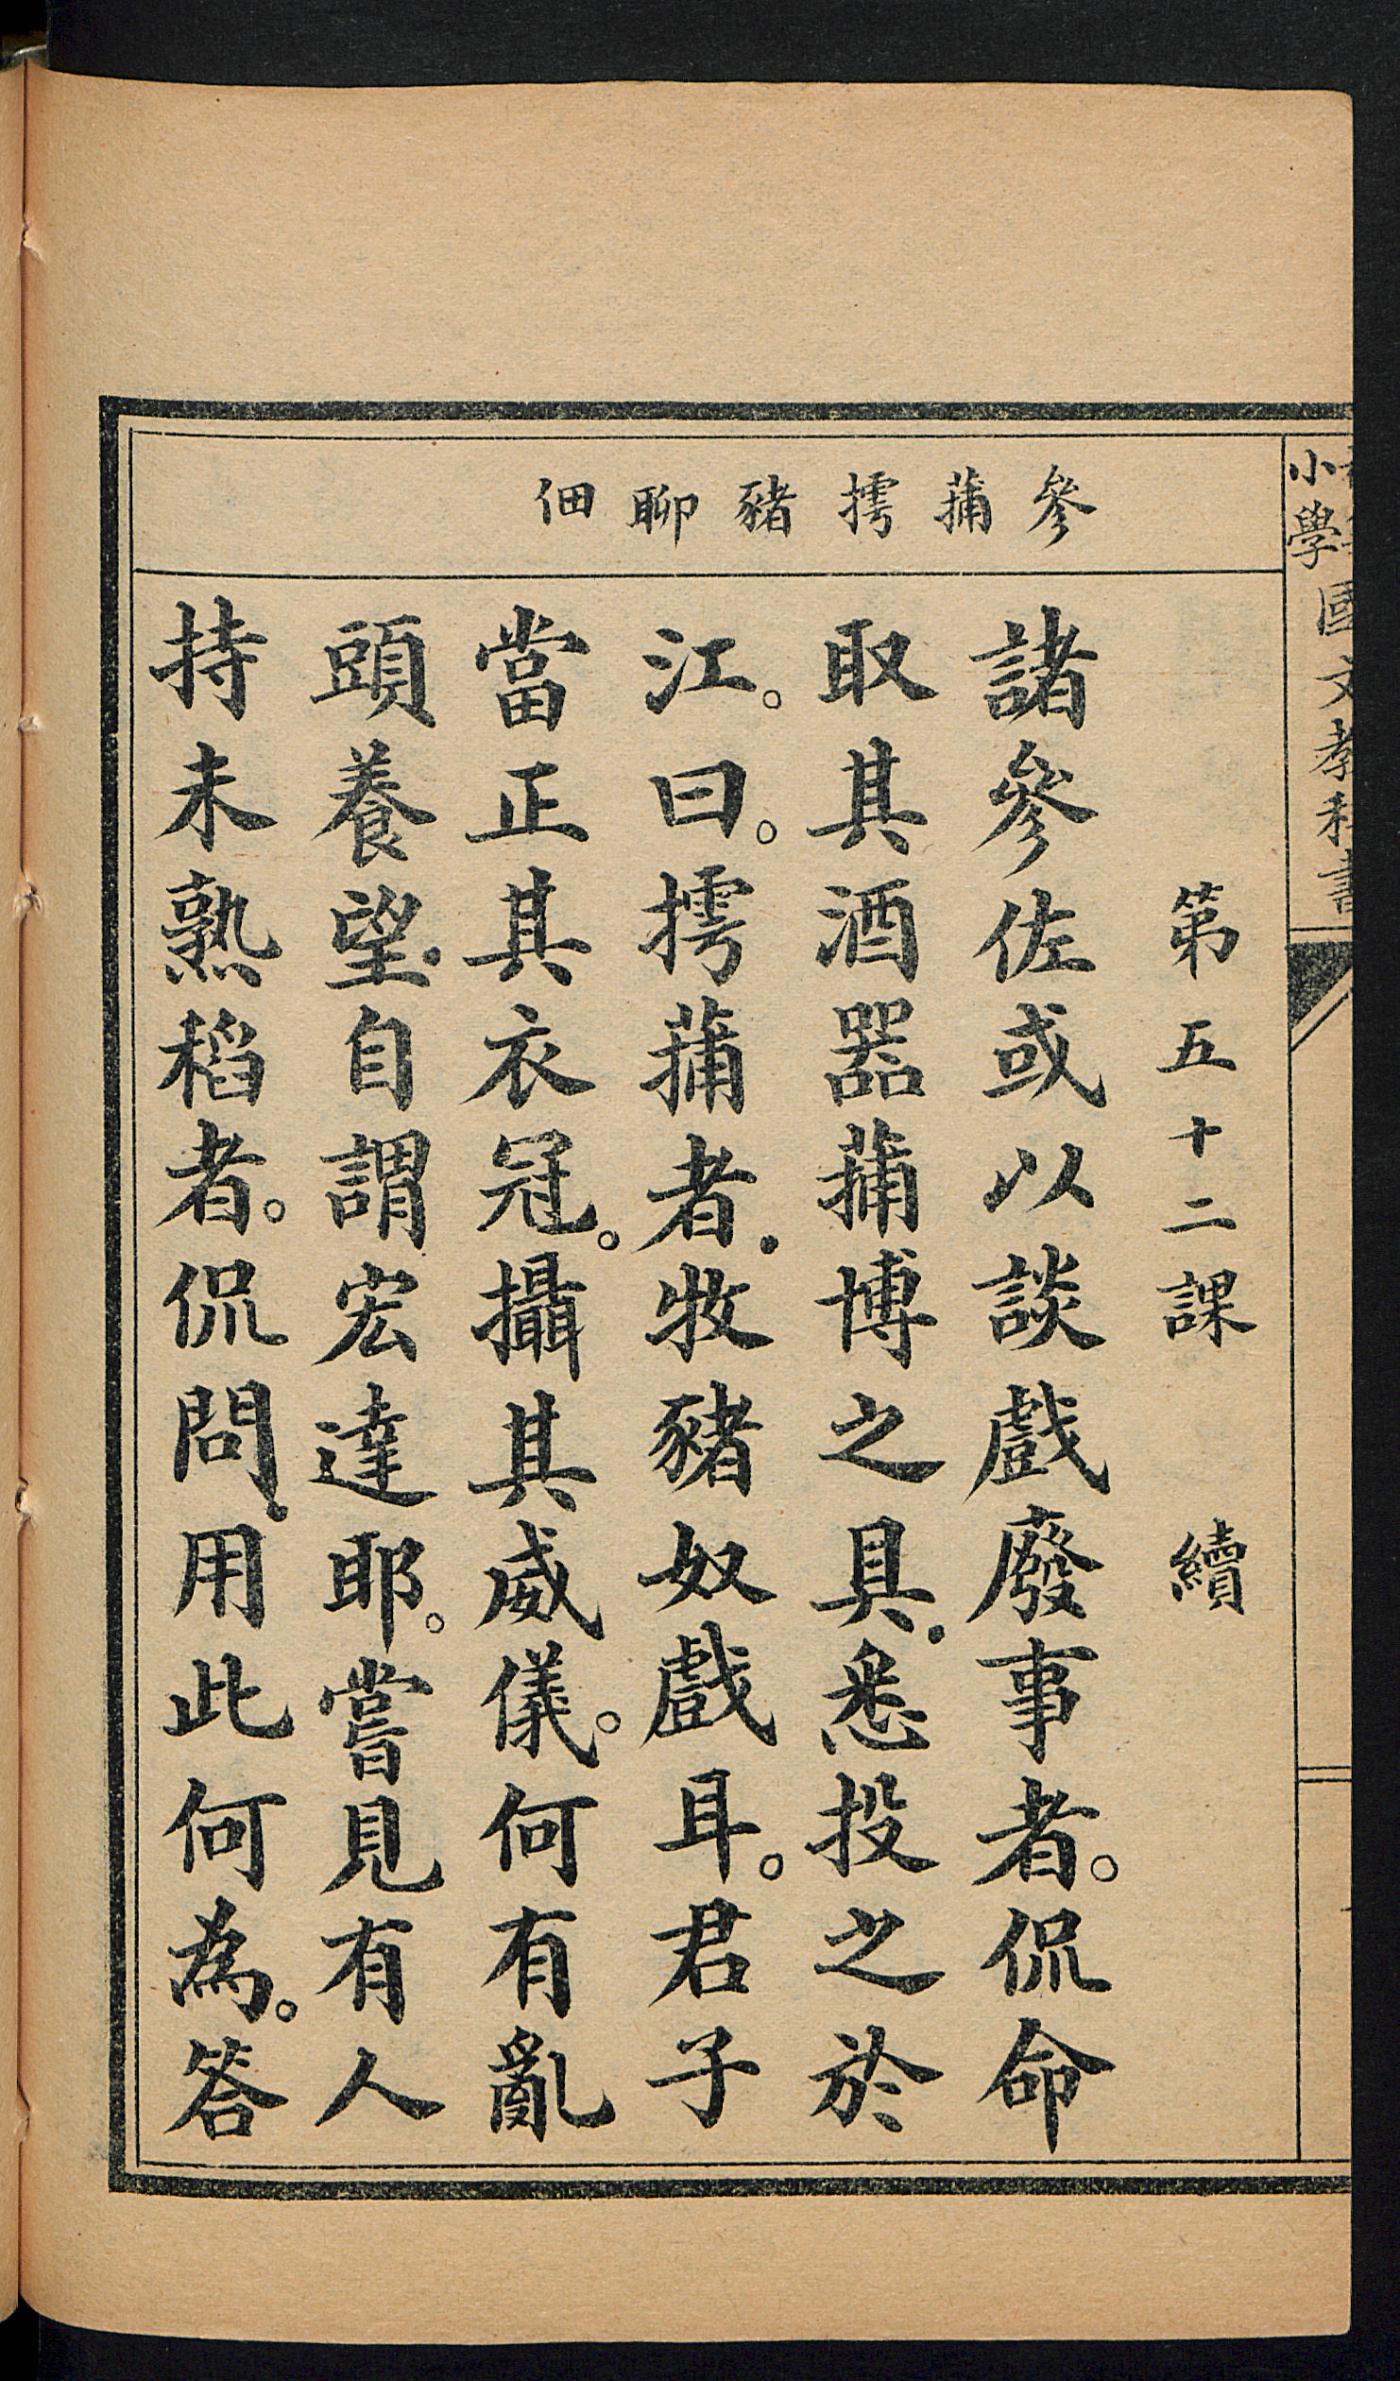 小學國文教科書
參蒱摴豬聊佃
第五十二課　續
諸參佐或以談戲廢事者。侃命
取其酒器蒱博之具.悉投之於
江。曰。摴蒱者.牧豬奴戲耳。君子
當正其衣冠。攝其威儀。何有亂
頭養望.自謂宏達耶。嘗見有人
持未熟稻者。侃問.用此何為。答